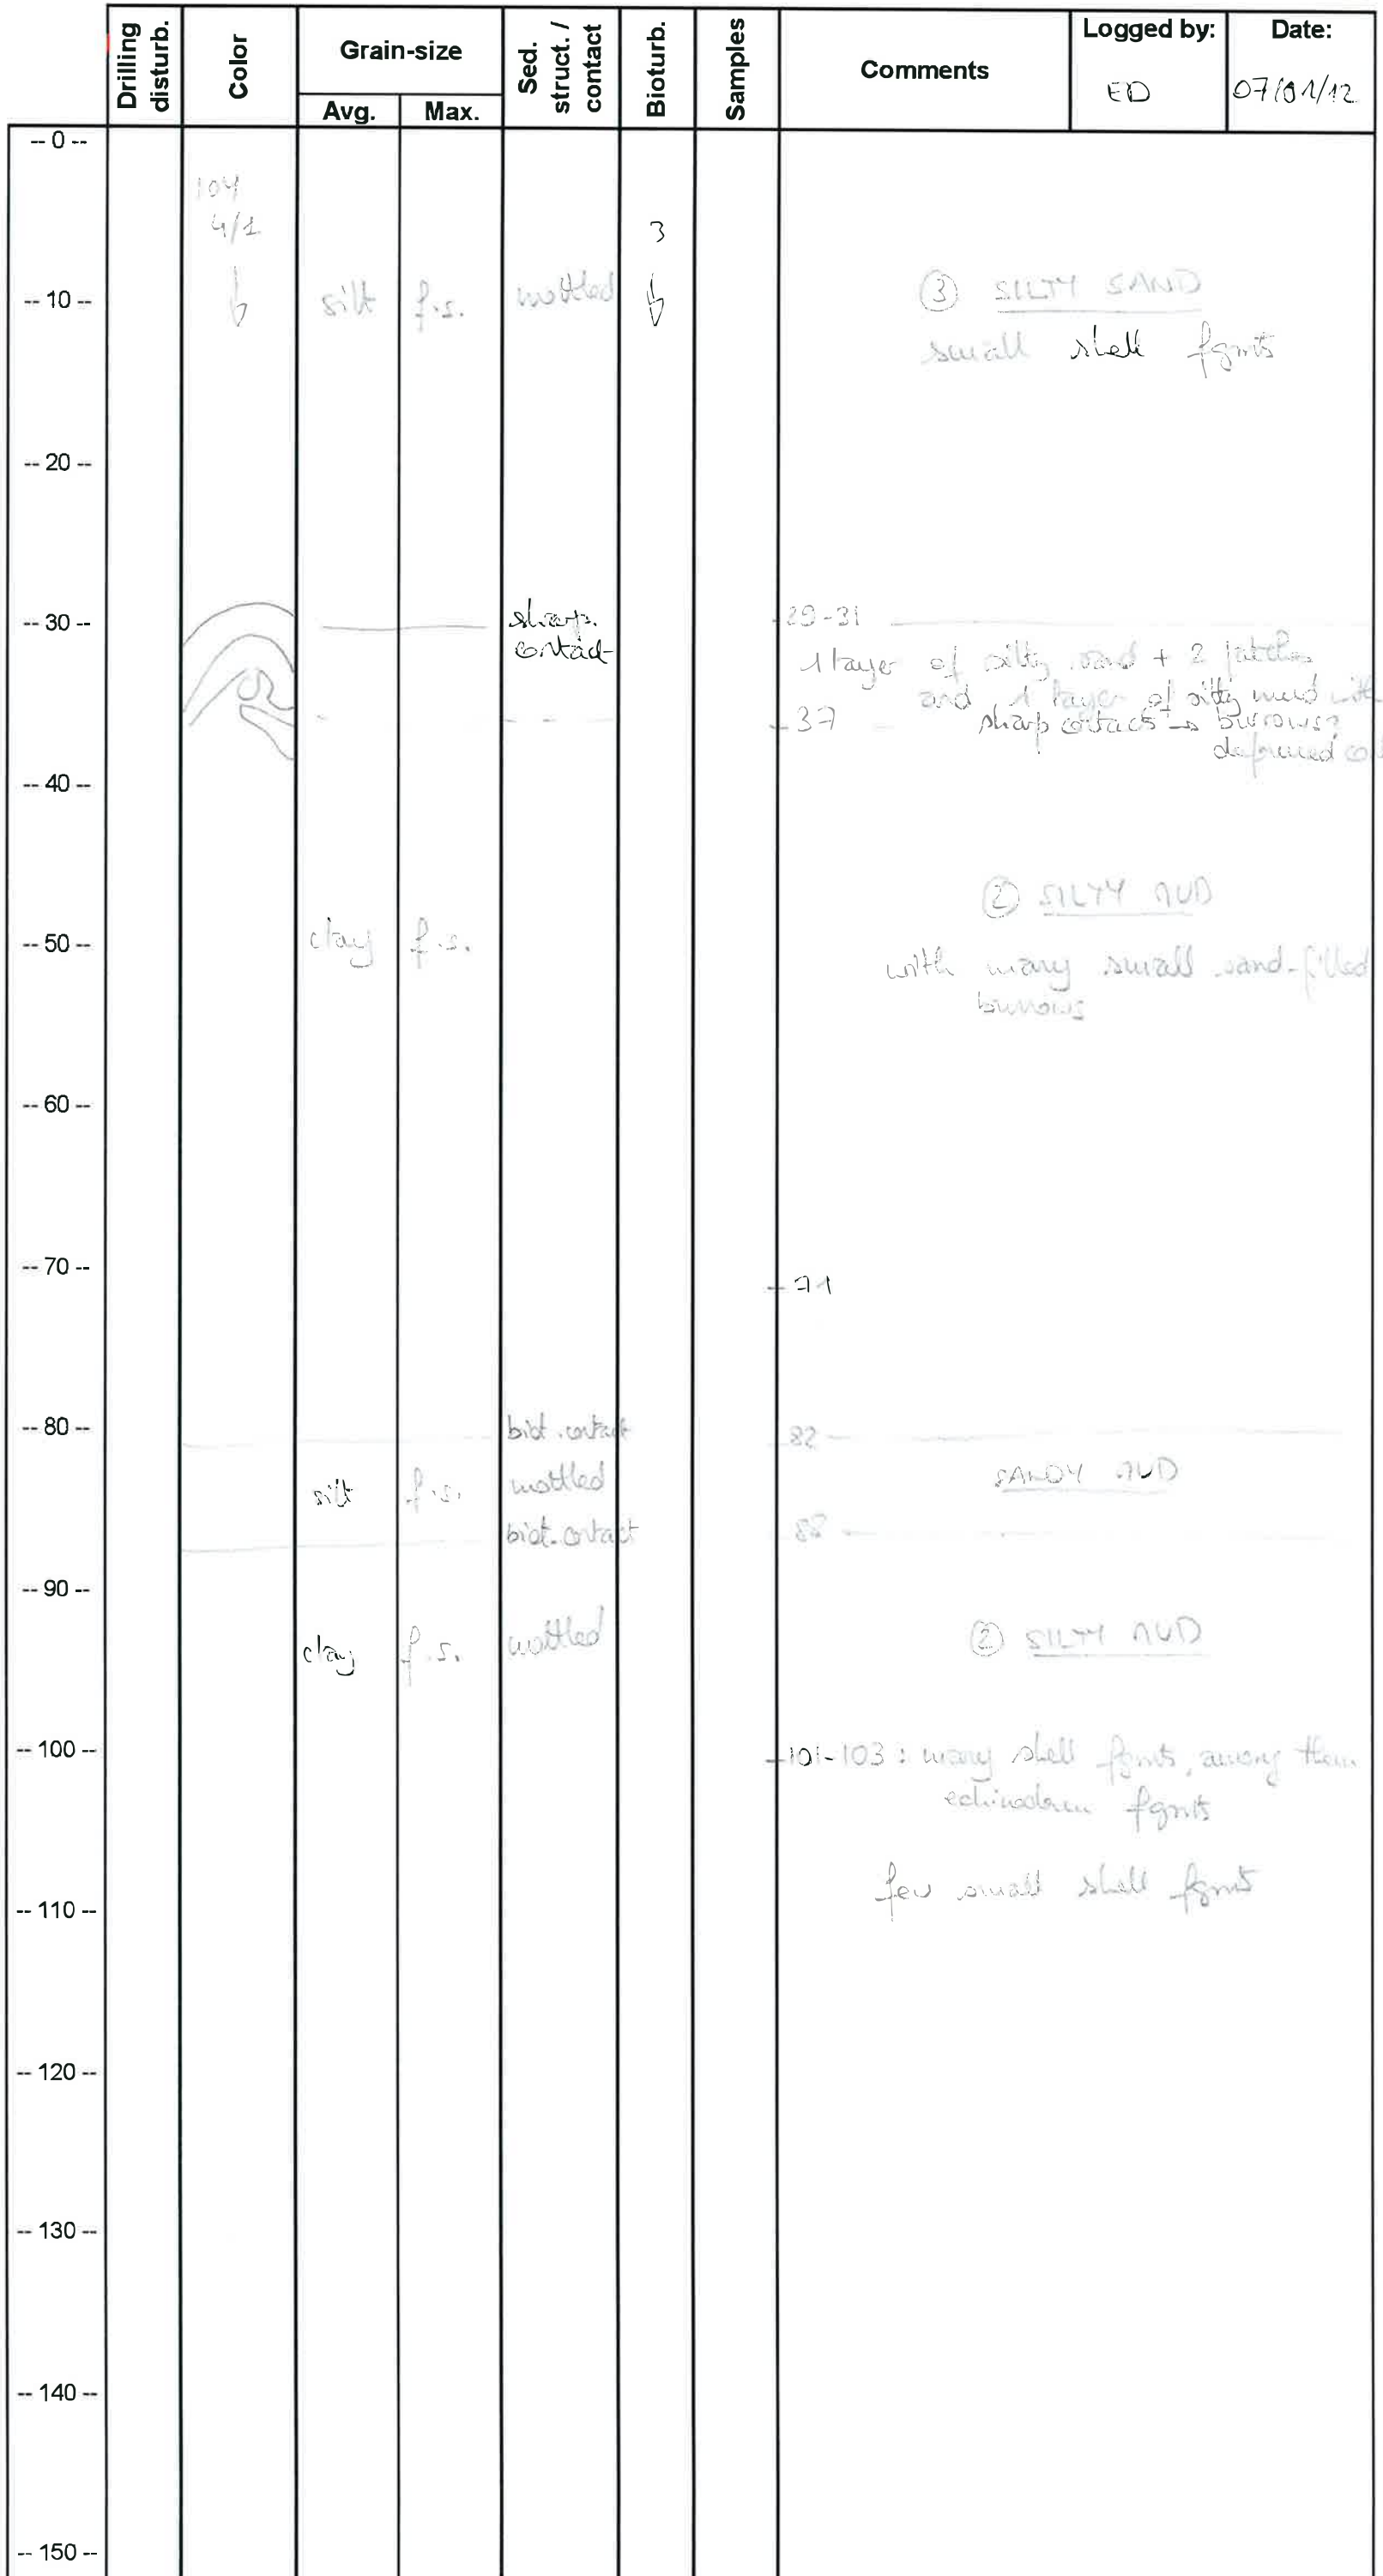 Drilling disturb.
Color
Grain-size
Avg.
Max.
Sed. struct. / contact
Bioturb.
Samples
Comments
Logged by:
ED
Date:
07/01/12
-- 0 --
10Y
4/1
3
-- 10 --
silt f.s. mottled
③ SILTY SAND
small shell fgmts
-- 20 --
-- 30 --
sharp.
contact
29-31
1 layer of silty sand + 2 patches
and 1 layer of silty mud with
37 sharp contacts → burrows?
deformed
-- 40 --
② SILTY MUD
-- 50 --
clay f.s.
with many small sand-filled
burrows
-- 60 --
-- 70 --
71
-- 80 --
biot. contact
82
silt f.s. mottled
SANDY MUD
biot. contact
88
-- 90 --
clay f.s. mottled
② SILTY MUD
-- 100 --
101-103 : many shell fgmts, among them
echinoderm fgmts
few small shell fgmts
-- 110 --
-- 120 --
-- 130 --
-- 140 --
-- 150 --